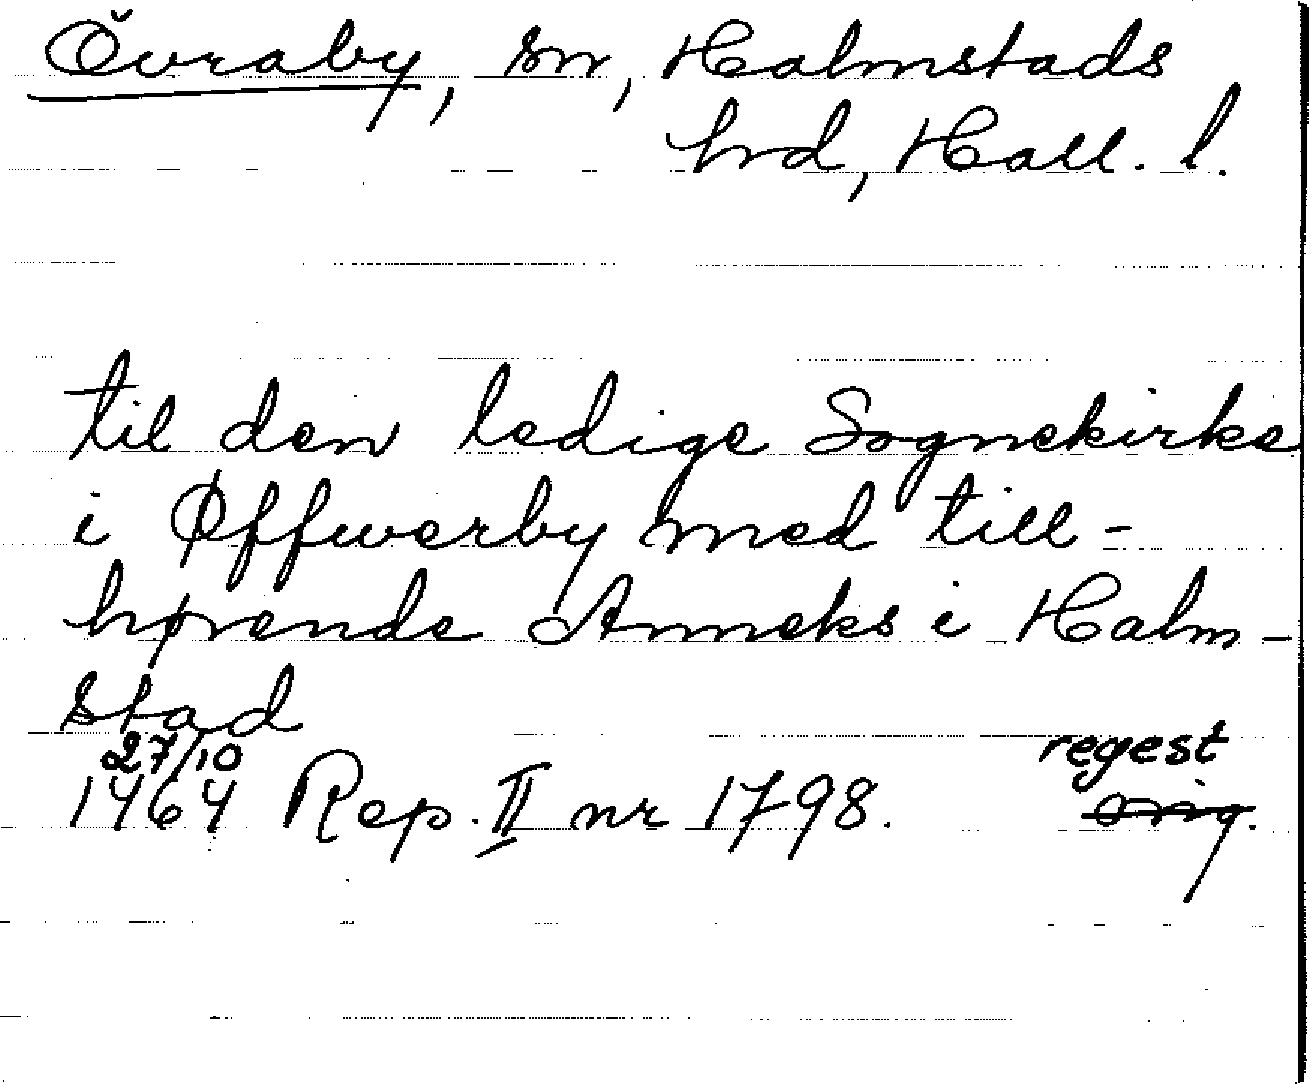 Övraby, sn, Halmstads
hrd, Hall. l.
til den ledige Sognekirke
i Øffwerby med till-
hørende Anneks i Halm-
stad
27/10
1464 Rep. II nr 1798.
regest
orig.